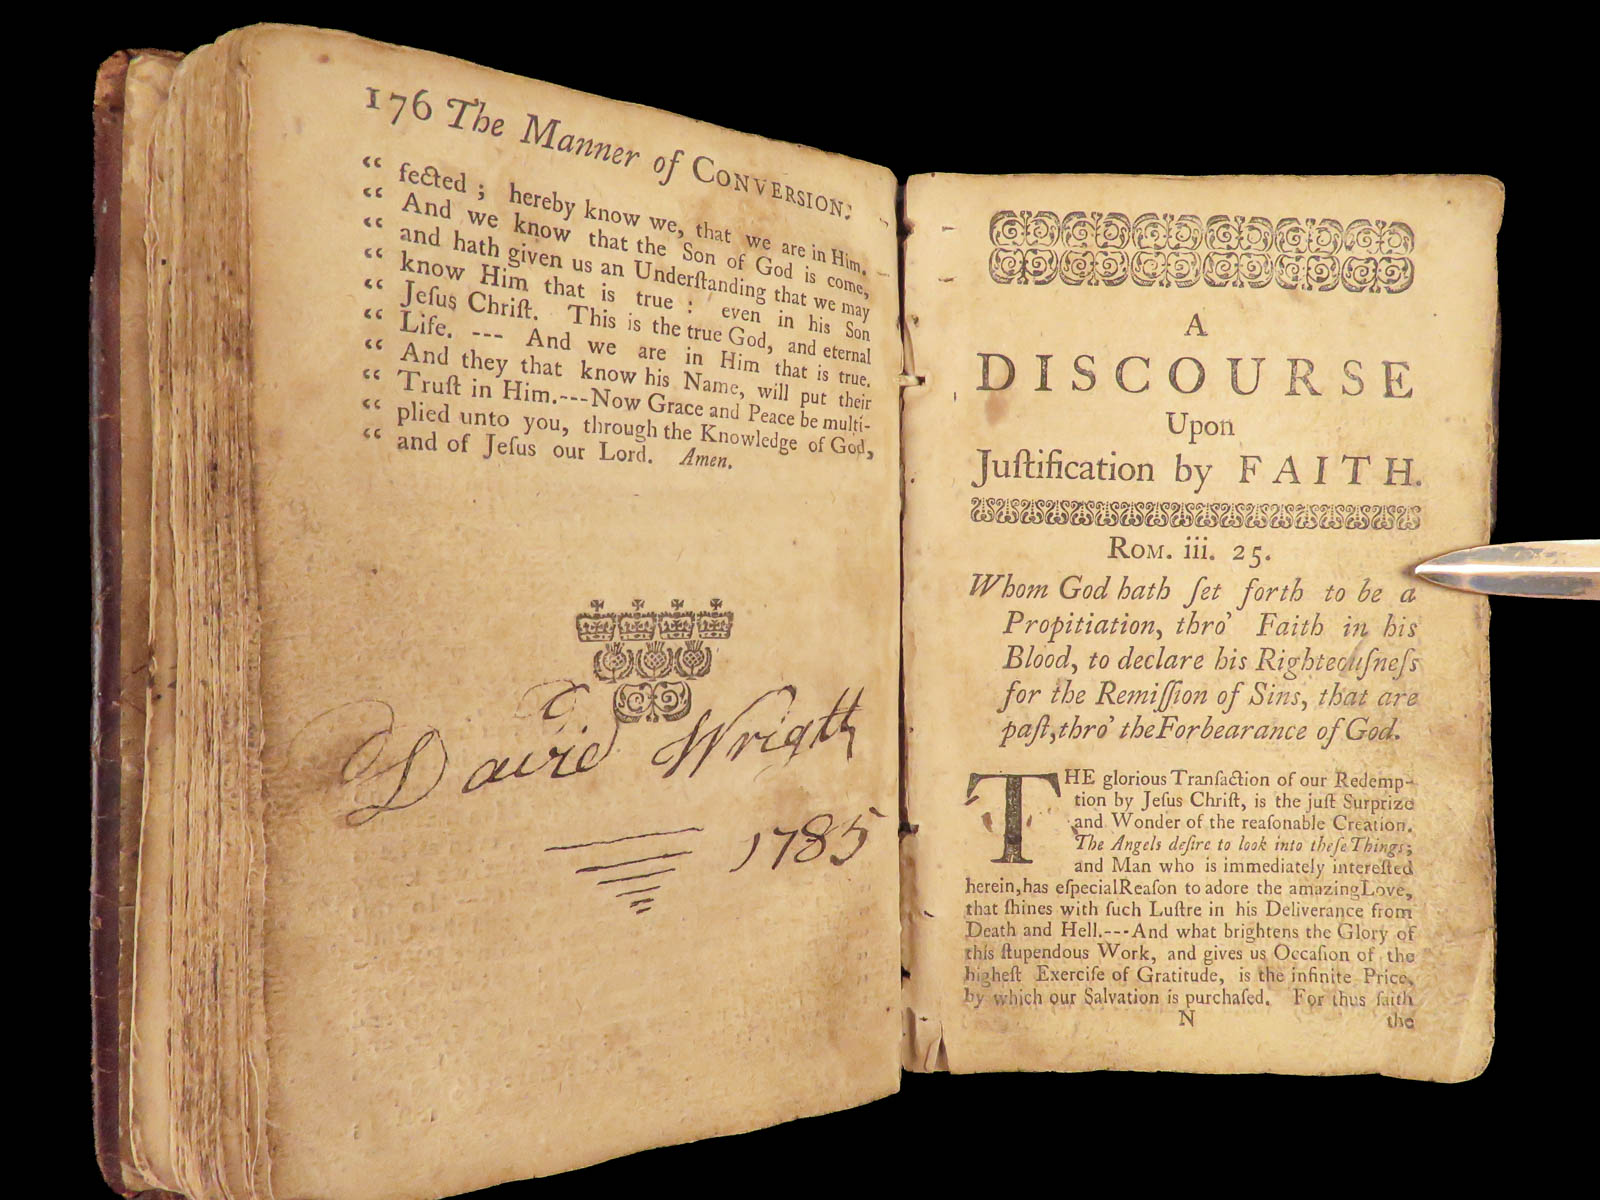 176 The Manner of CONVERSION:
“ fected ; hereby know we, that we are in Him.
“ And we know that the Son of God is come,
“ and hath given us an Underſtanding that we may
“ know Him that is true : even in his Son
“ Jeſus Chriſt. This is the true God, and eternal
“ Life. --- And we are in Him that is true.
“ And they that know his Name, will put their
“ Truſt in Him.---Now Grace and Peace be multi-
“ plied unto you, through the Knowledge of God,
“ and of Jeſus our Lord. Amen.
David Wright
1785
A
DISCOURSE
Upon
Juſtification by FAITH.
ROM. iii. 25.
Whom God hath ſet forth to be a
Propitiation, thro' Faith in his
Blood, to declare his Righteouſneſs
for the Remiſſion of Sins, that are
paſt, thro' the Forbearance of God.
THE glorious Tranſaction of our Redemp-
tion by Jeſus Chriſt, is the juſt Surprize
and Wonder of the reaſonable Creation.
The Angels deſire to look into theſe Things;
and Man who is immediately intereſted
herein, has eſpecial Reaſon to adore the amazing Love,
that ſhines with ſuch Luſtre in his Deliverance from
Death and Hell.---And what brightens the Glory of
this ſtupendous Work, and gives us Occaſion of the
higheſt Exerciſe of Gratitude, is the infinite Price,
by which our Salvation is purchaſed. For thus ſaith
N the